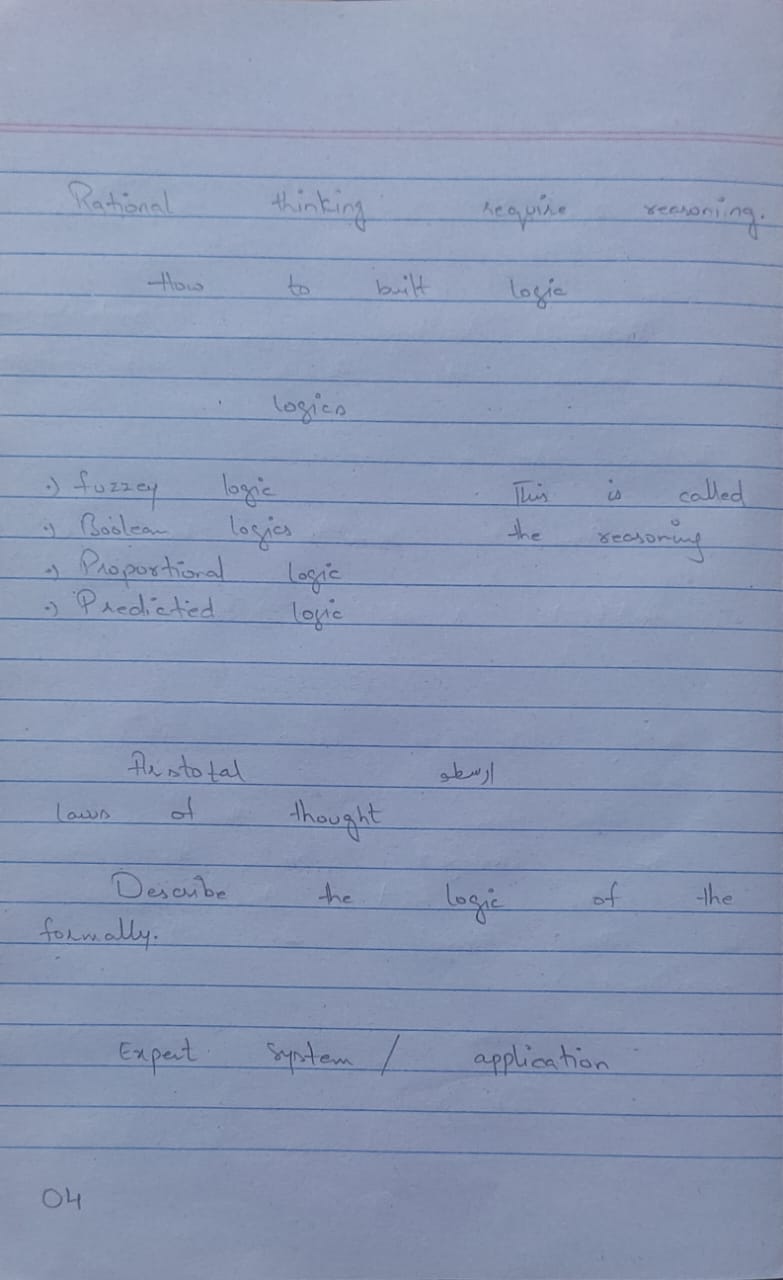 Rational thinking require reasoning.
How to built logic
logics
•) fuzzey logic
•) Boolean logics
•) Proportional logic
•) Predicted logic
This is called
the reasoning
Aristotal ارسطو
laws of thought
Describe the logic of the
formally.
Expert System / application
04